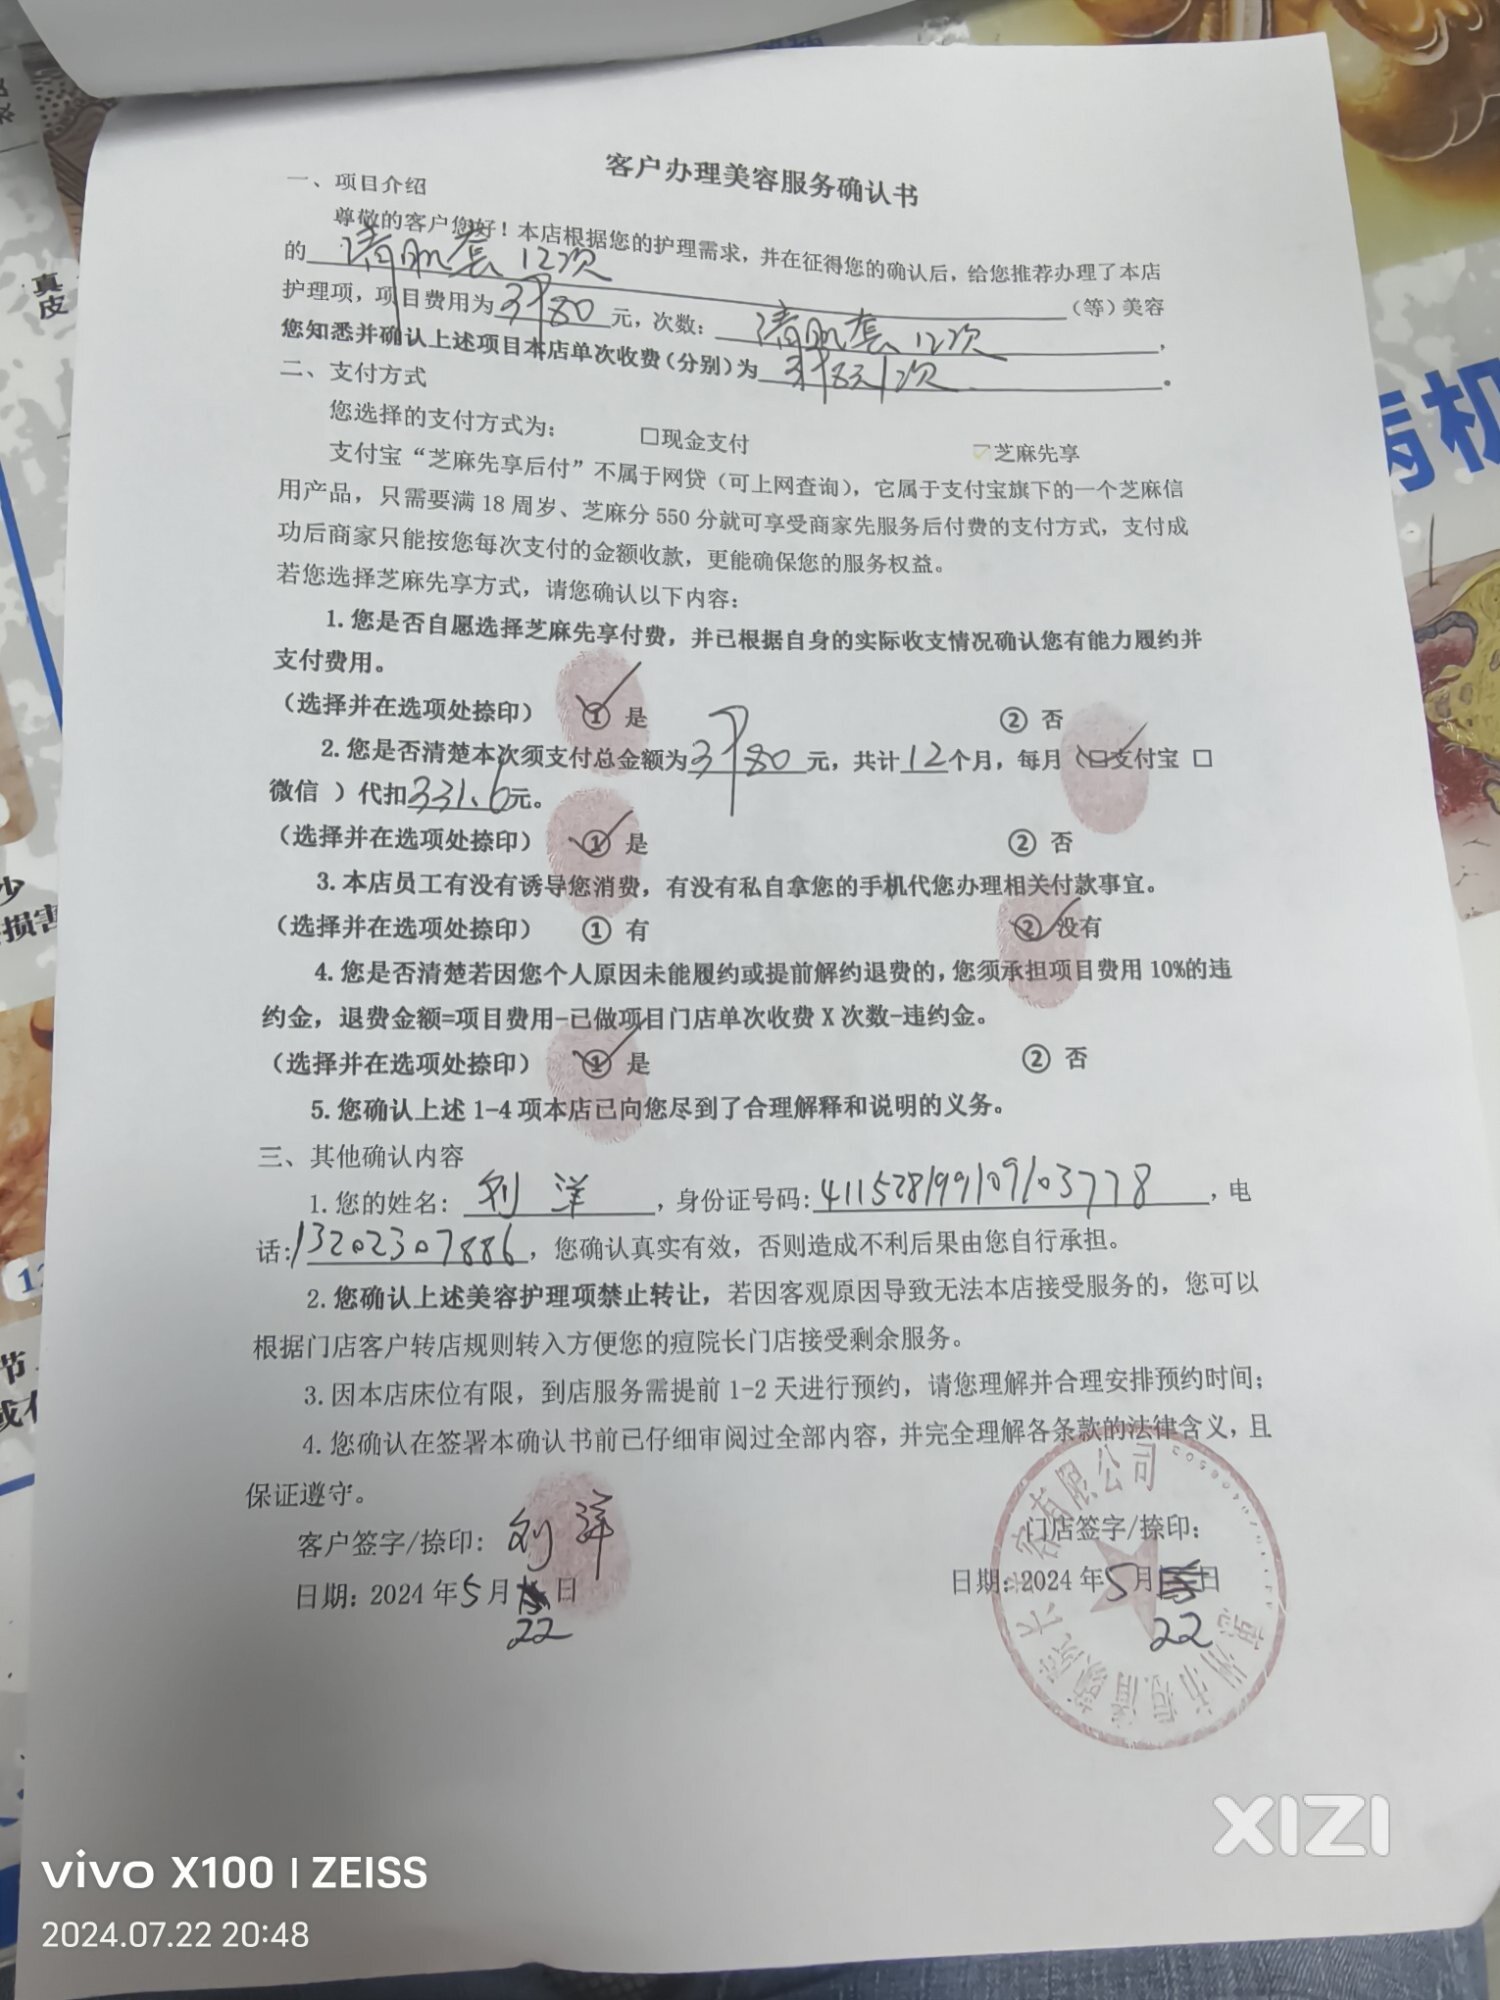 客户办理美容服务确认书
一、项目介绍
尊敬的客户您好！本店根据您的护理需求，并在征得您的确认后，给您推荐办理了本店
的 清肌套 12次 （等）美容
护理项，项目费用为3980元，次数： 清肌套 12次 ，
您知悉并确认上述项目本店单次收费（分别）为 398元/次 。
二、支付方式
您选择的支付方式为： □现金支付 ☑芝麻先享
支付宝“芝麻先享后付”不属于网贷（可上网查询），它属于支付宝旗下的一个芝麻信
用产品，只需要满 18 周岁、芝麻分 550 分就可享受商家先服务后付费的支付方式，支付成
功后商家只能按您每次支付的金额收款，更能确保您的服务权益。
若您选择芝麻先享方式，请您确认以下内容：
1.您是否自愿选择芝麻先享付费，并已根据自身的实际收支情况确认您有能力履约并
支付费用。
（选择并在选项处捺印） ① 是 ② 否
2.您是否清楚本次须支付总金额为3980元，共计12个月，每月（☑支付宝 □
微信 ）代扣331.6元。
（选择并在选项处捺印） ① 是 ② 否
3.本店员工有没有诱导您消费，有没有私自拿您的手机代您办理相关付款事宜。
（选择并在选项处捺印） ① 有 ② 没有
4.您是否清楚若因您个人原因未能履约或提前解约退费的，您须承担项目费用 10%的违
约金，退费金额=项目费用-已做项目门店单次收费 X 次数-违约金。
（选择并在选项处捺印） ① 是 ② 否
5.您确认上述 1-4 项本店已向您尽到了合理解释和说明的义务。
三、其他确认内容
1.您的姓名： 刘洋 ，身份证号码：411528199109103778，电
话：13202307886，您确认真实有效，否则造成不利后果由您自行承担。
2.您确认上述美容护理项禁止转让，若因客观原因导致无法本店接受服务的，您可以
根据门店客户转店规则转入方便您的痘院长门店接受剩余服务。
3.因本店床位有限，到店服务需提前 1-2 天进行预约，请您理解并合理安排预约时间；
4.您确认在签署本确认书前已仔细审阅过全部内容，并完全理解各条款的法律含义，且
保证遵守。
客户签字/捺印： 刘洋
门店签字/捺印：
日期：2024 年5月22日
日期：2024 年5月22日
院长
容有限公司
XIZI
vivo X100 | ZEISS
2024.07.22 20:48
真
皮
病机
少
损害
节
或有